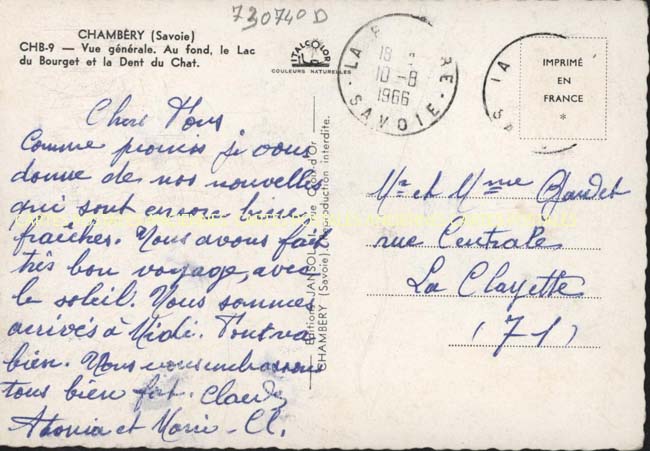 730740 D
CHAMBÉRY (Savoie)
CHB-9 — Vue générale. Au fond, le Lac
du Bourget et la Dent du Chat.
ITALCOLOR
COULEURS NATURELLES
10-8
1966
SAVOIE
IMPRIMÉ
EN
FRANCE
*
Chers Vous
Comme promis je vous
donne de nos nouvelles
qui sont encore bien
fraîches. Nous avons fait
très bon voyage, avec
le soleil. Nous sommes
arrivés à Midi. Tout va
bien. Nous vous embrassons
tous bien fort. Claude
et Marie-Cl.
Editions JANSOL
CHAMBÉRY (Savoie) Reproduction interdite.
Mr et Mme
rue Centrale
La Clayette
(71)